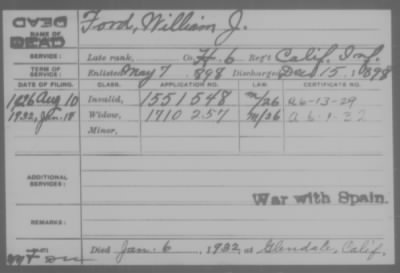 DEAD
NAME OF
DEAD
Ford, William J.
SERVICE: Late rank, Co. H. 6 Reg't Calif. Inf.
TERM OF SERVICE: Enlisted May 7 1898 Discharged Dec 15, 1898
DATE OF FILING. CLASS. APPLICATION NO. LAW. CERTIFICATE NO.
1926 Aug 10 Invalid, 1551548 A6-13-29
1932, Jan. 18 Widow, 1710257 A6-1-32
Minor,
ADDITIONAL SERVICES:
War with Spain.
REMARKS:
Died Jan. 6, 1932, at Glendale, Calif.